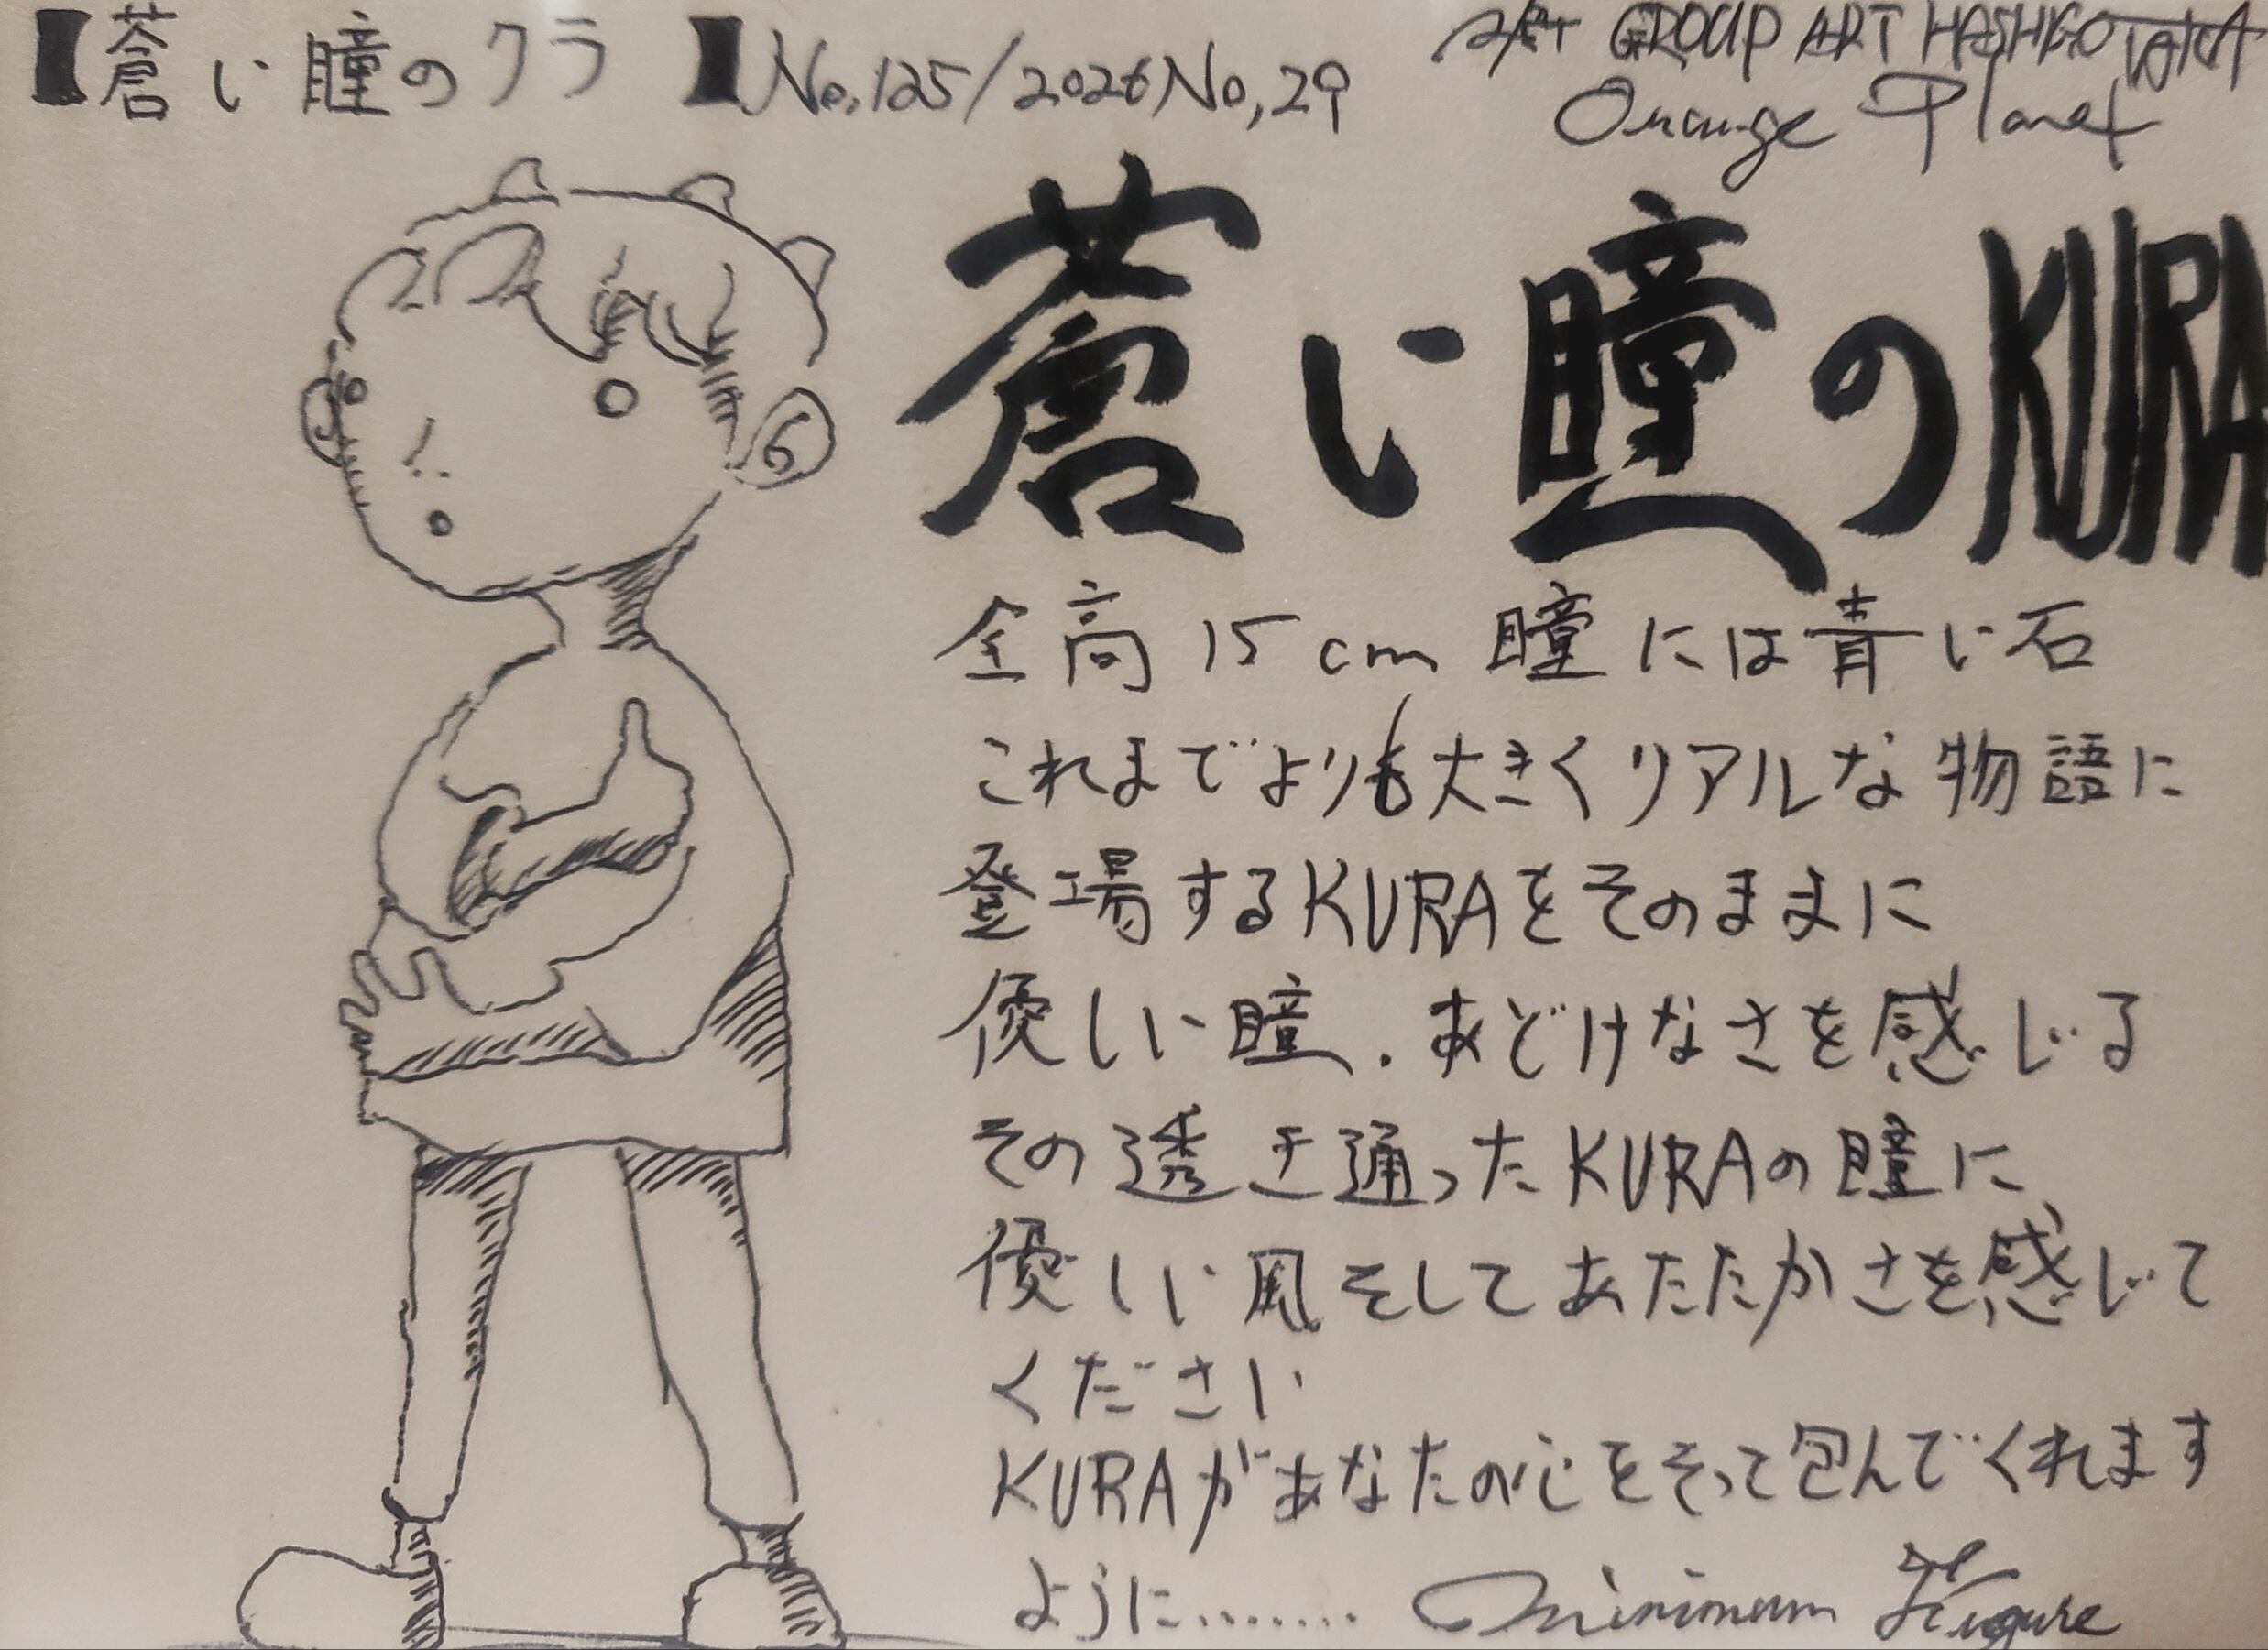 【蒼い瞳のクラ】No.125/2026No,29
GROUP ART HASHIGOTAKA
Orange Planet
蒼い瞳のKURA
全高15cm 瞳には青い石
これまでよりも大きくリアルな物語に
登場するKURAをそのままに
優しい瞳.あどけなさを感じる
その透き通ったKURAの瞳に、
優しい風そしてあたたかさを感じて
ください
KURAがあなたの心をそって包んでくれます
ように........ minimum Figure